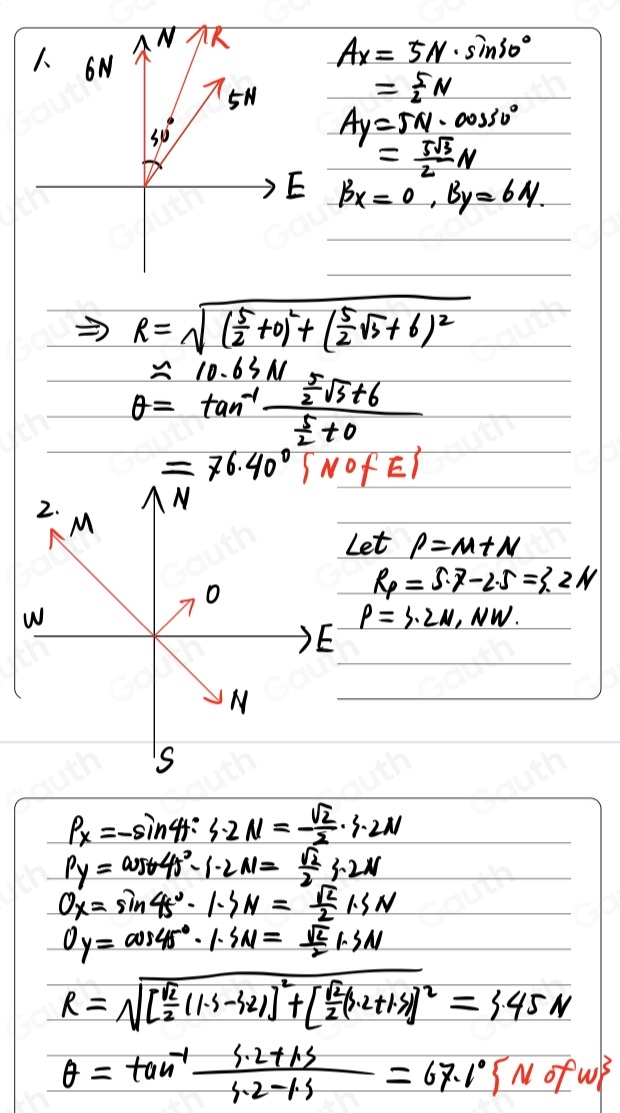 1.
6N
N
R
5N
30°
E
Ax = 5N · sin30°
= 5/2 N
Ay = 5N · cos30°
= 5√3/2 N
Bx = 0, By = 6N.
⇒ R = √((5/2 + 0)² + (5/2 √3 + 6)²)
≈ 10.63N
θ = tan⁻¹ (5/2 √3 + 6)/(5/2 + 0)
= 76.40° {N of E}
2.
M
N
O
W
E
N
S
Let P = M + N
Rp = 5.7 - 2.5 = 3.2N
P = 3.2N, NW.
Px = -sin45° · 3.2N = -√2/2 · 3.2N
Py = cos45° · 3.2N = √2/2 3.2N
Ox = sin45° · 1.3N = √2/2 1.3N
Oy = cos45° · 1.3N = √2/2 1.3N
R = √([√2/2 (1.3 - 3.2)]² + [√2/2 (3.2 + 1.3)]²) = 3.45N
θ = tan⁻¹ (3.2 + 1.3)/(3.2 - 1.3) = 67.1° {N of W}
Gauth